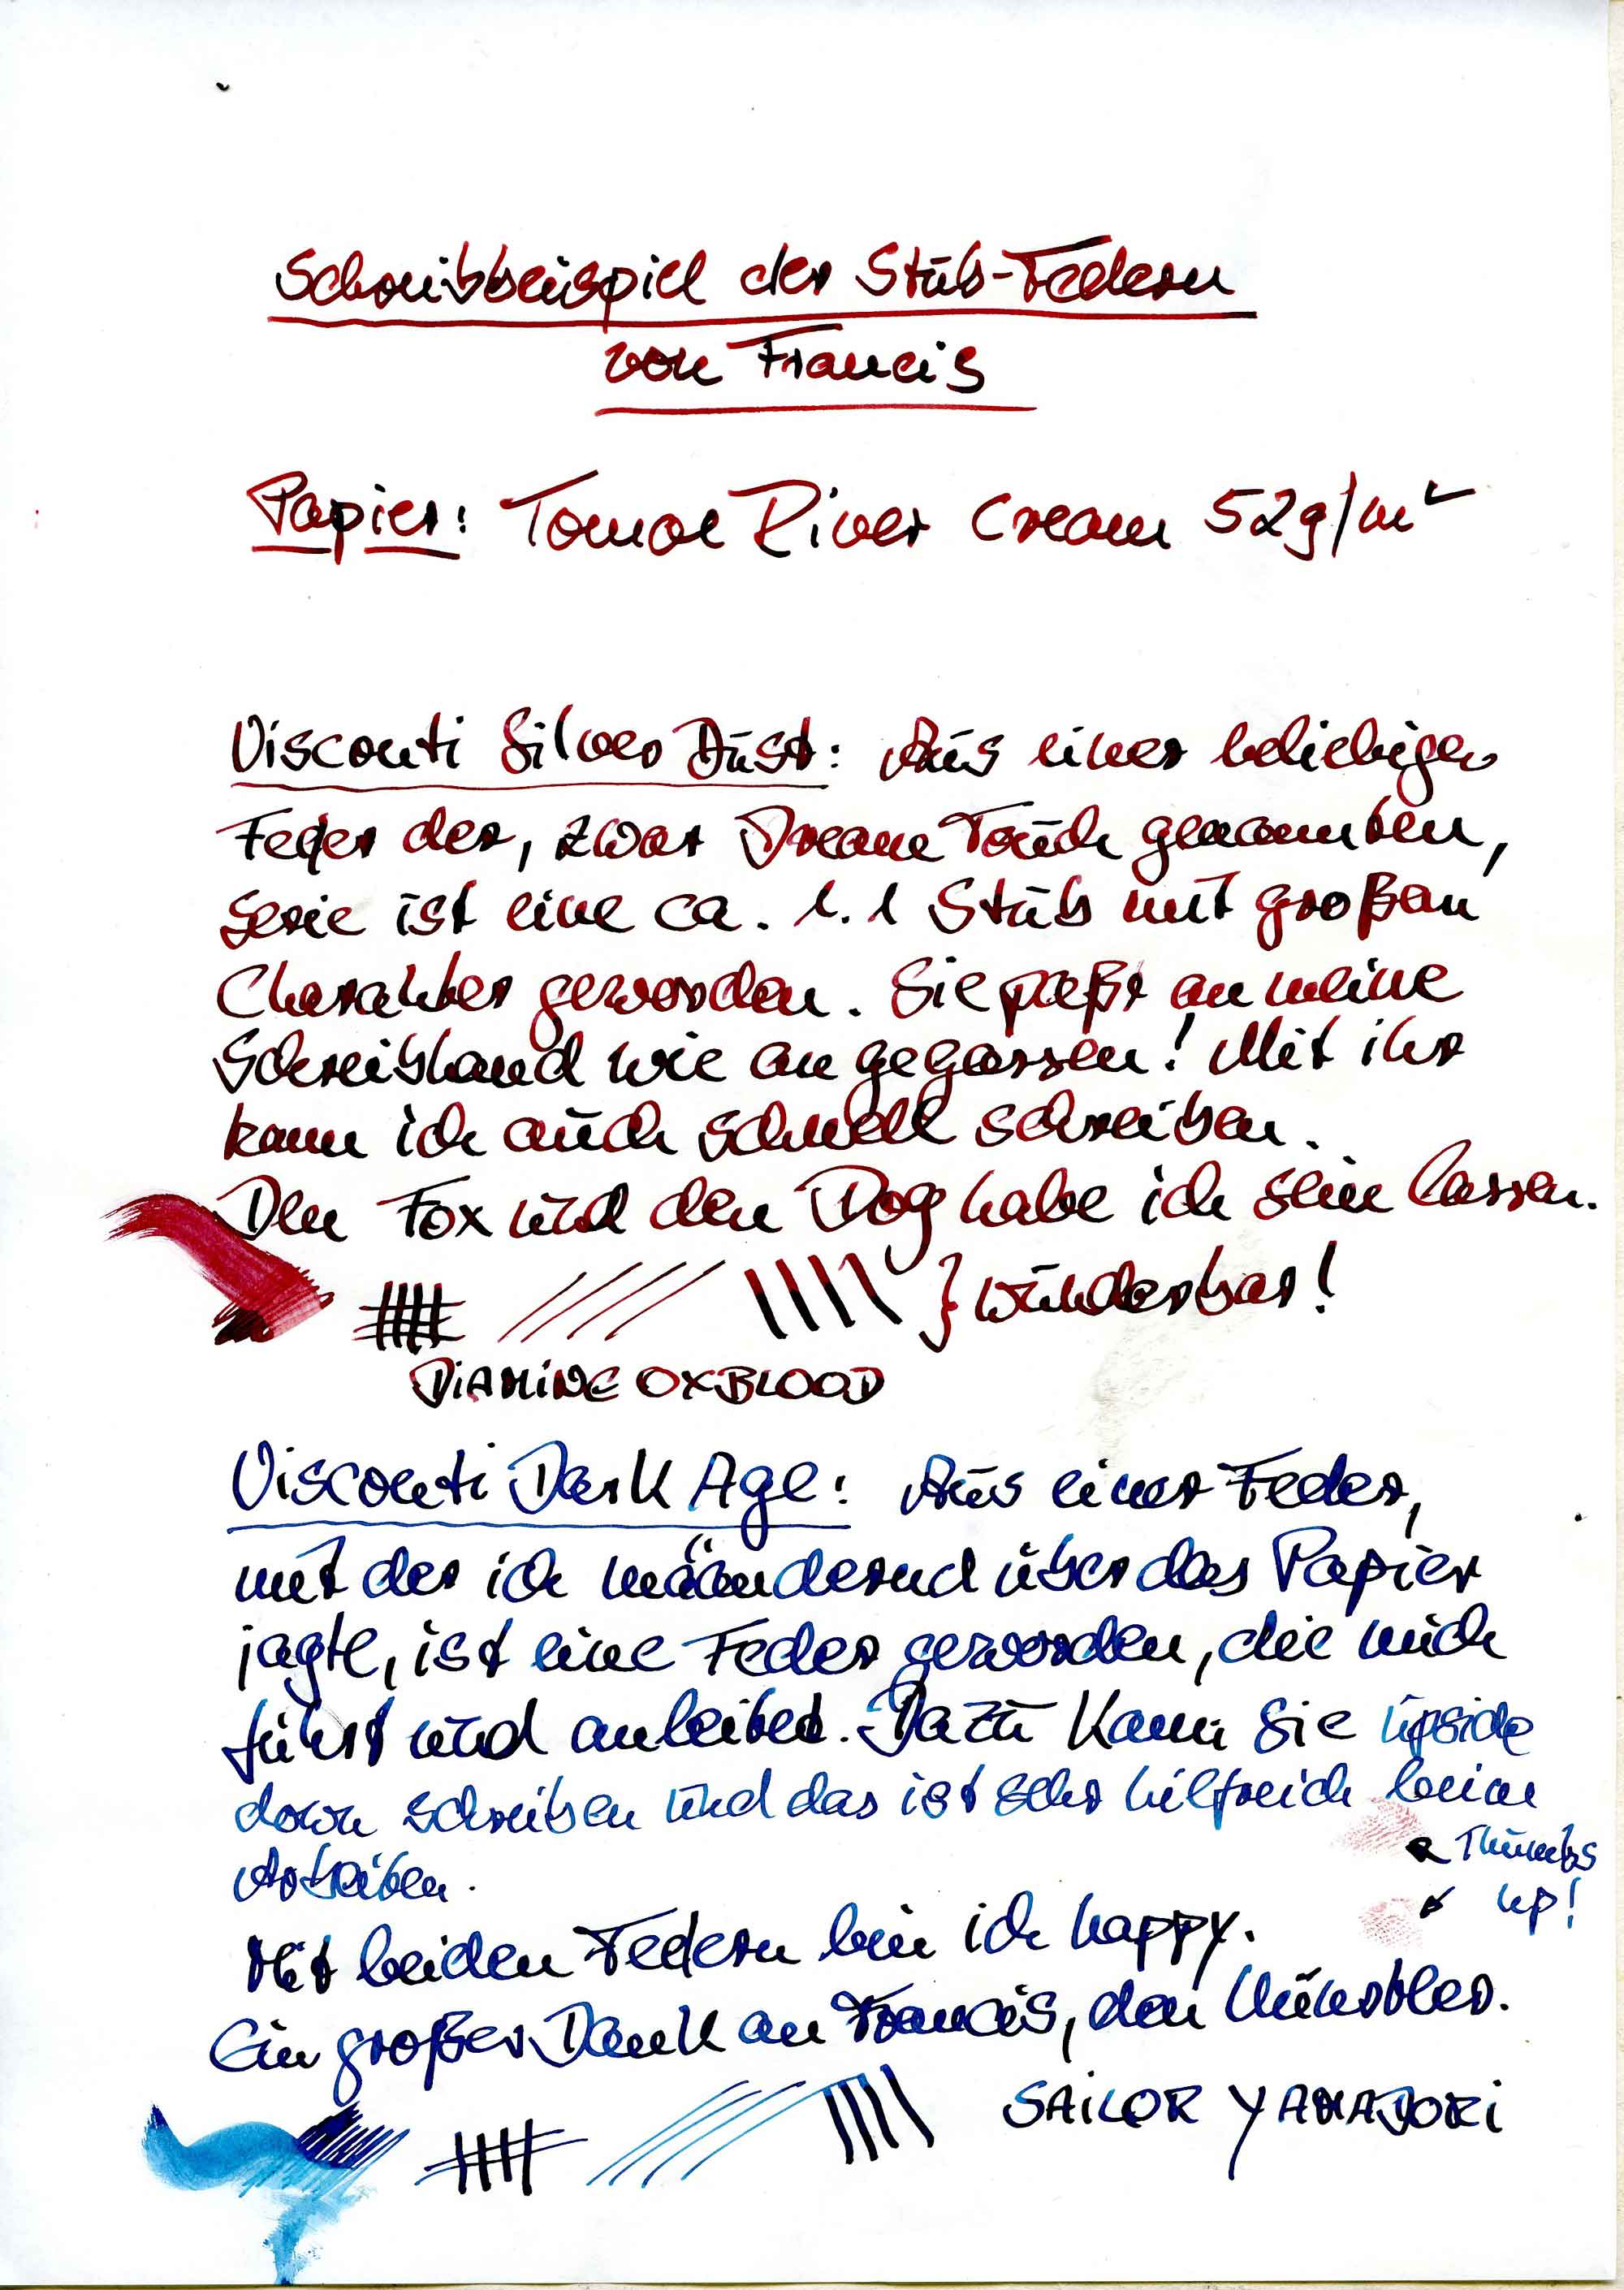 Schreibbeispiel der Stub-Federn
von Francis
Papier: Tomoe River Cream 52g/m²
Visconti Silver Dust: Aus einer beliebigen
Feder der, zwar Dream Touch genannten,
Serie ist eine ca. 1.1 Stub mit großem
Charakter geworden. Sie paßt an meine
Schreibhand wie angegossen! Mit ihr
kann ich auch schnell schreiben.
Den Fox und den Dog habe ich sein lassen.
} Wunderbar!
DIAMINE OXBLOOD
Visconti Dark Age: Aus einer Feder,
mit der ich mäandernd über das Papier
jagte, ist eine Feder geworden, die mich
führt und anleitet. Dazu kann sie upside
down schreiben und das ist sehr hilfreich beim
Arbeiten.
Thumbs
up!
Mit beiden Federn bin ich happy.
Ein großer Dank an Francis, den Künstler.
SAILOR YAMADORI